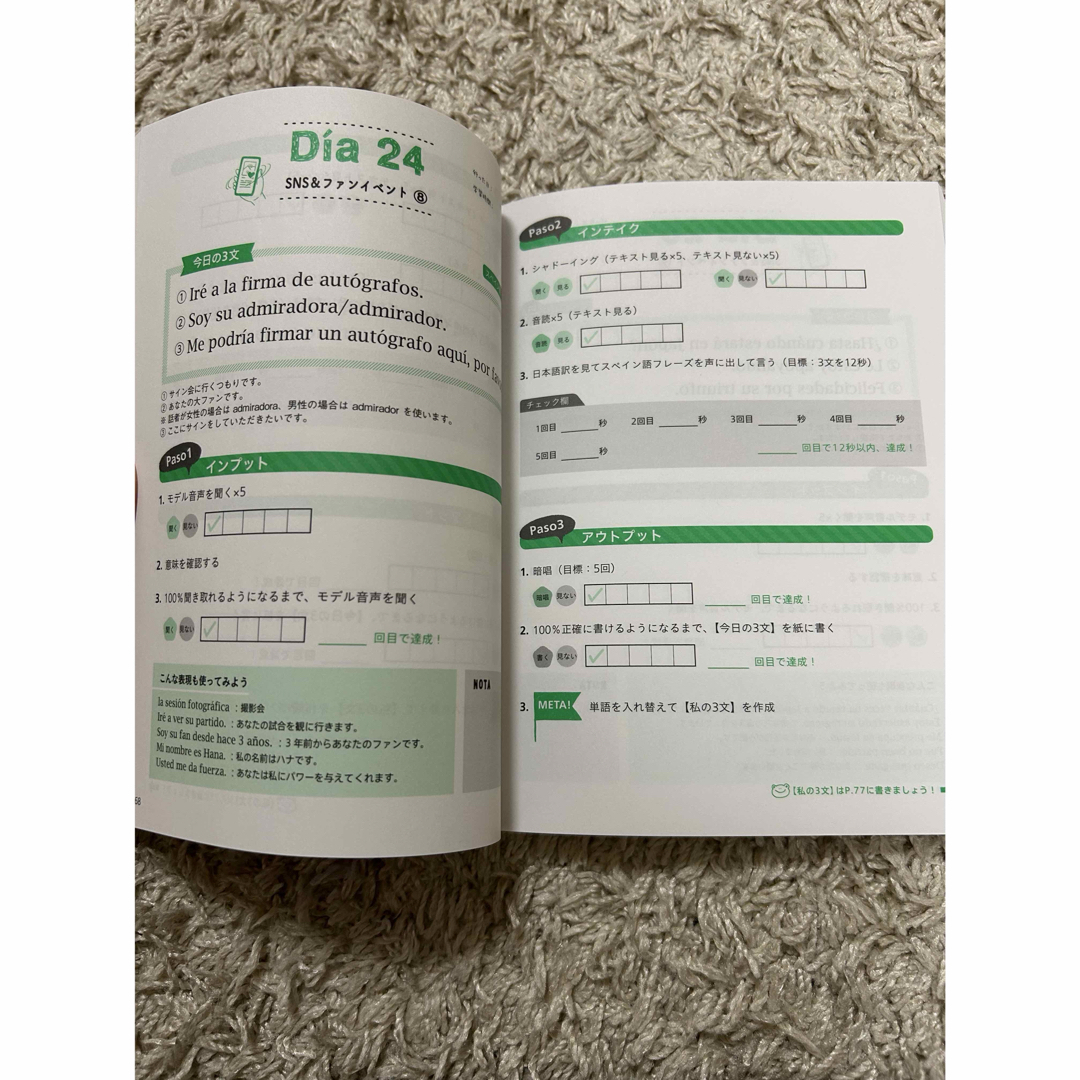 Día 24
SNS&ファンイベント ⑧
今日の3文
① Iré a la firma de autógrafos.
② Soy su admiradora/admirador.
③ Me podría firmar un autógrafo aquí, por
① サイン会に行くつもりです。
② あなたの大ファンです。
※ 話者が女性の場合は admiradora、男性の場合は admirador を使います。
③ ここにサインをしていただきたいです。
Paso1 インプット
1. モデル音声を聞く×5
聞く 見ない
2. 意味を確認する
3. 100%聞き取れるようになるまで、モデル音声を聞く
聞く 見ない 回目で達成！
こんな表現も使ってみよう
la sesión fotográfica : 撮影会
Iré a ver su partido. : あなたの試合を観に行きます。
Soy su fan desde hace 3 años. : 3年前からあなたのファンです。
Mi nombre es Hana. : 私の名前はハナです。
Usted me da fuerza. : あなたは私にパワーを与えてくれます。
NOTA
Paso2 インテイク
1. シャドーイング（テキスト見る×5、テキスト見ない×5）
聞く 見る 聞く 見ない
2. 音読×5（テキスト見る）
音読 見る
3. 日本語訳を見てスペイン語フレーズを声に出して言う（目標：3文を12秒）
チェック欄
1回目 秒 2回目 秒 3回目 秒 4回目 秒
5回目 秒 回目で12秒以内、達成！
Paso3 アウトプット
1. 暗唱（目標：5回）
暗唱 見ない 回目で達成！
2. 100%正確に書けるようになるまで、【今日の3文】を紙に書く
書く 見ない 回目で達成！
3. META! 単語を入れ替えて【私の3文】を作成
【私の3文】はP.77に書きましょう！